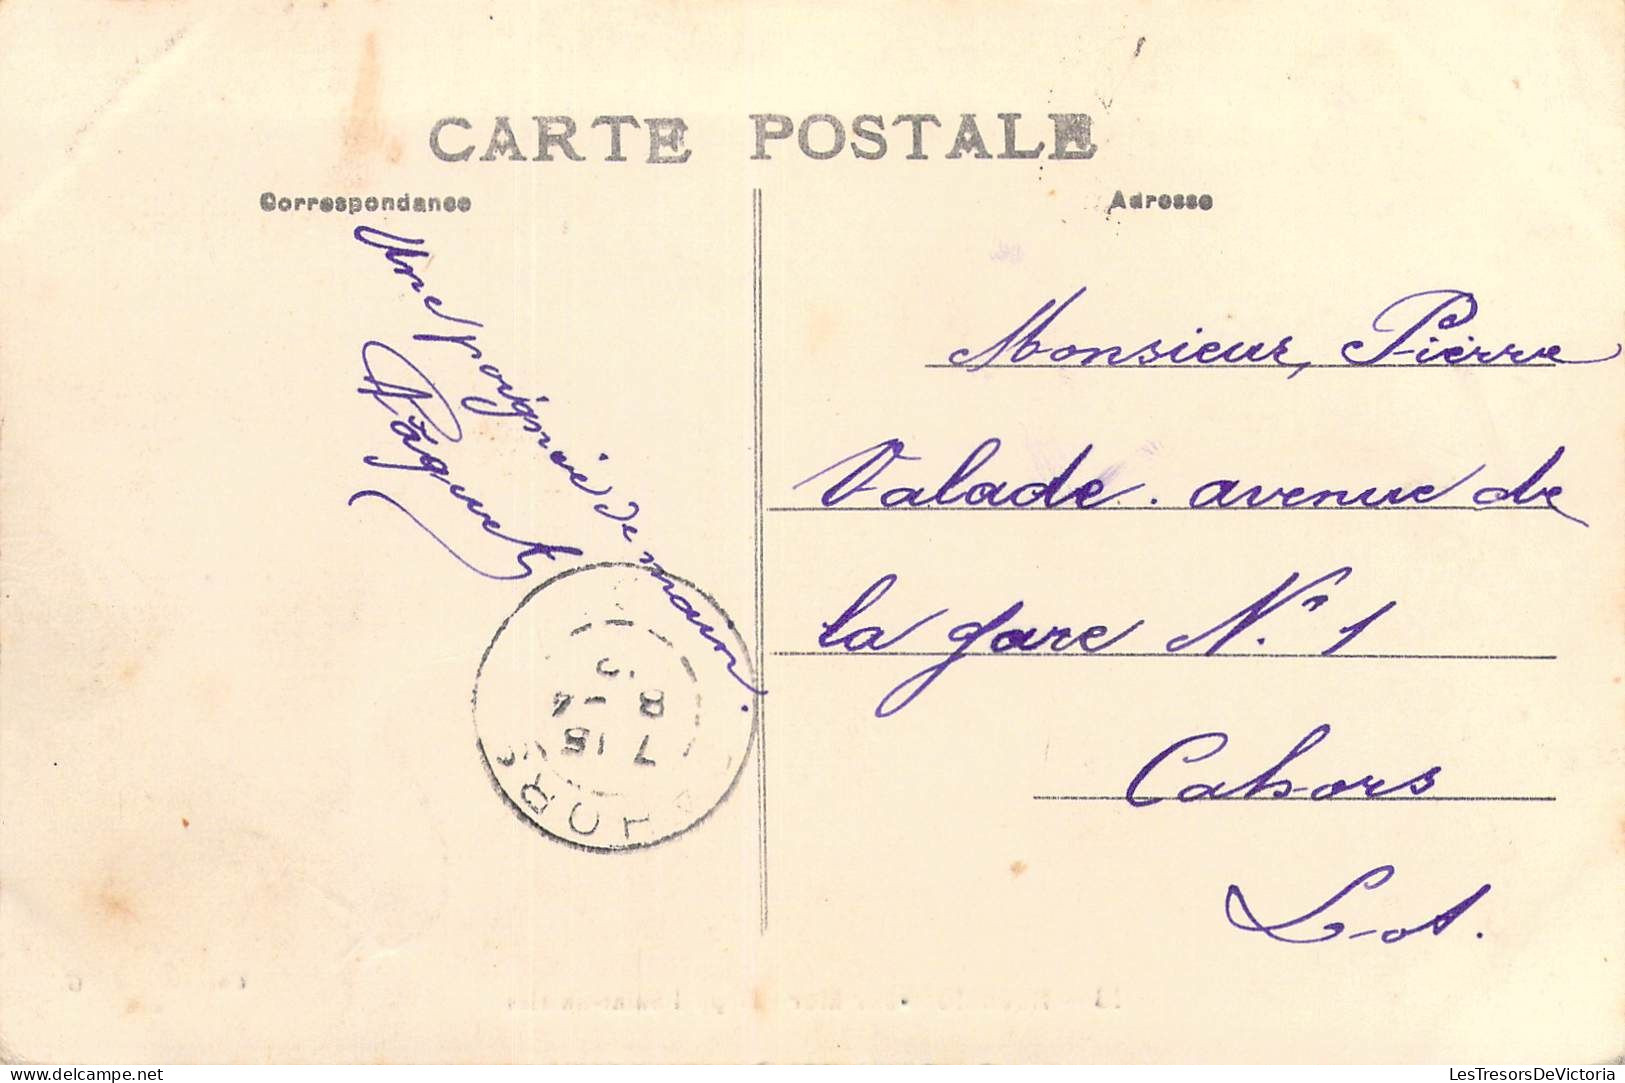 CARTE POSTALE
Correspondance
Adresse
Une poignée de main.
Pâquet
Monsieur, Pierre
Valade. avenue de
la gare N.º 1
Cahors
Lot.
7 15
8 - 4
delcampe.net
LesTresorsDeVictoria